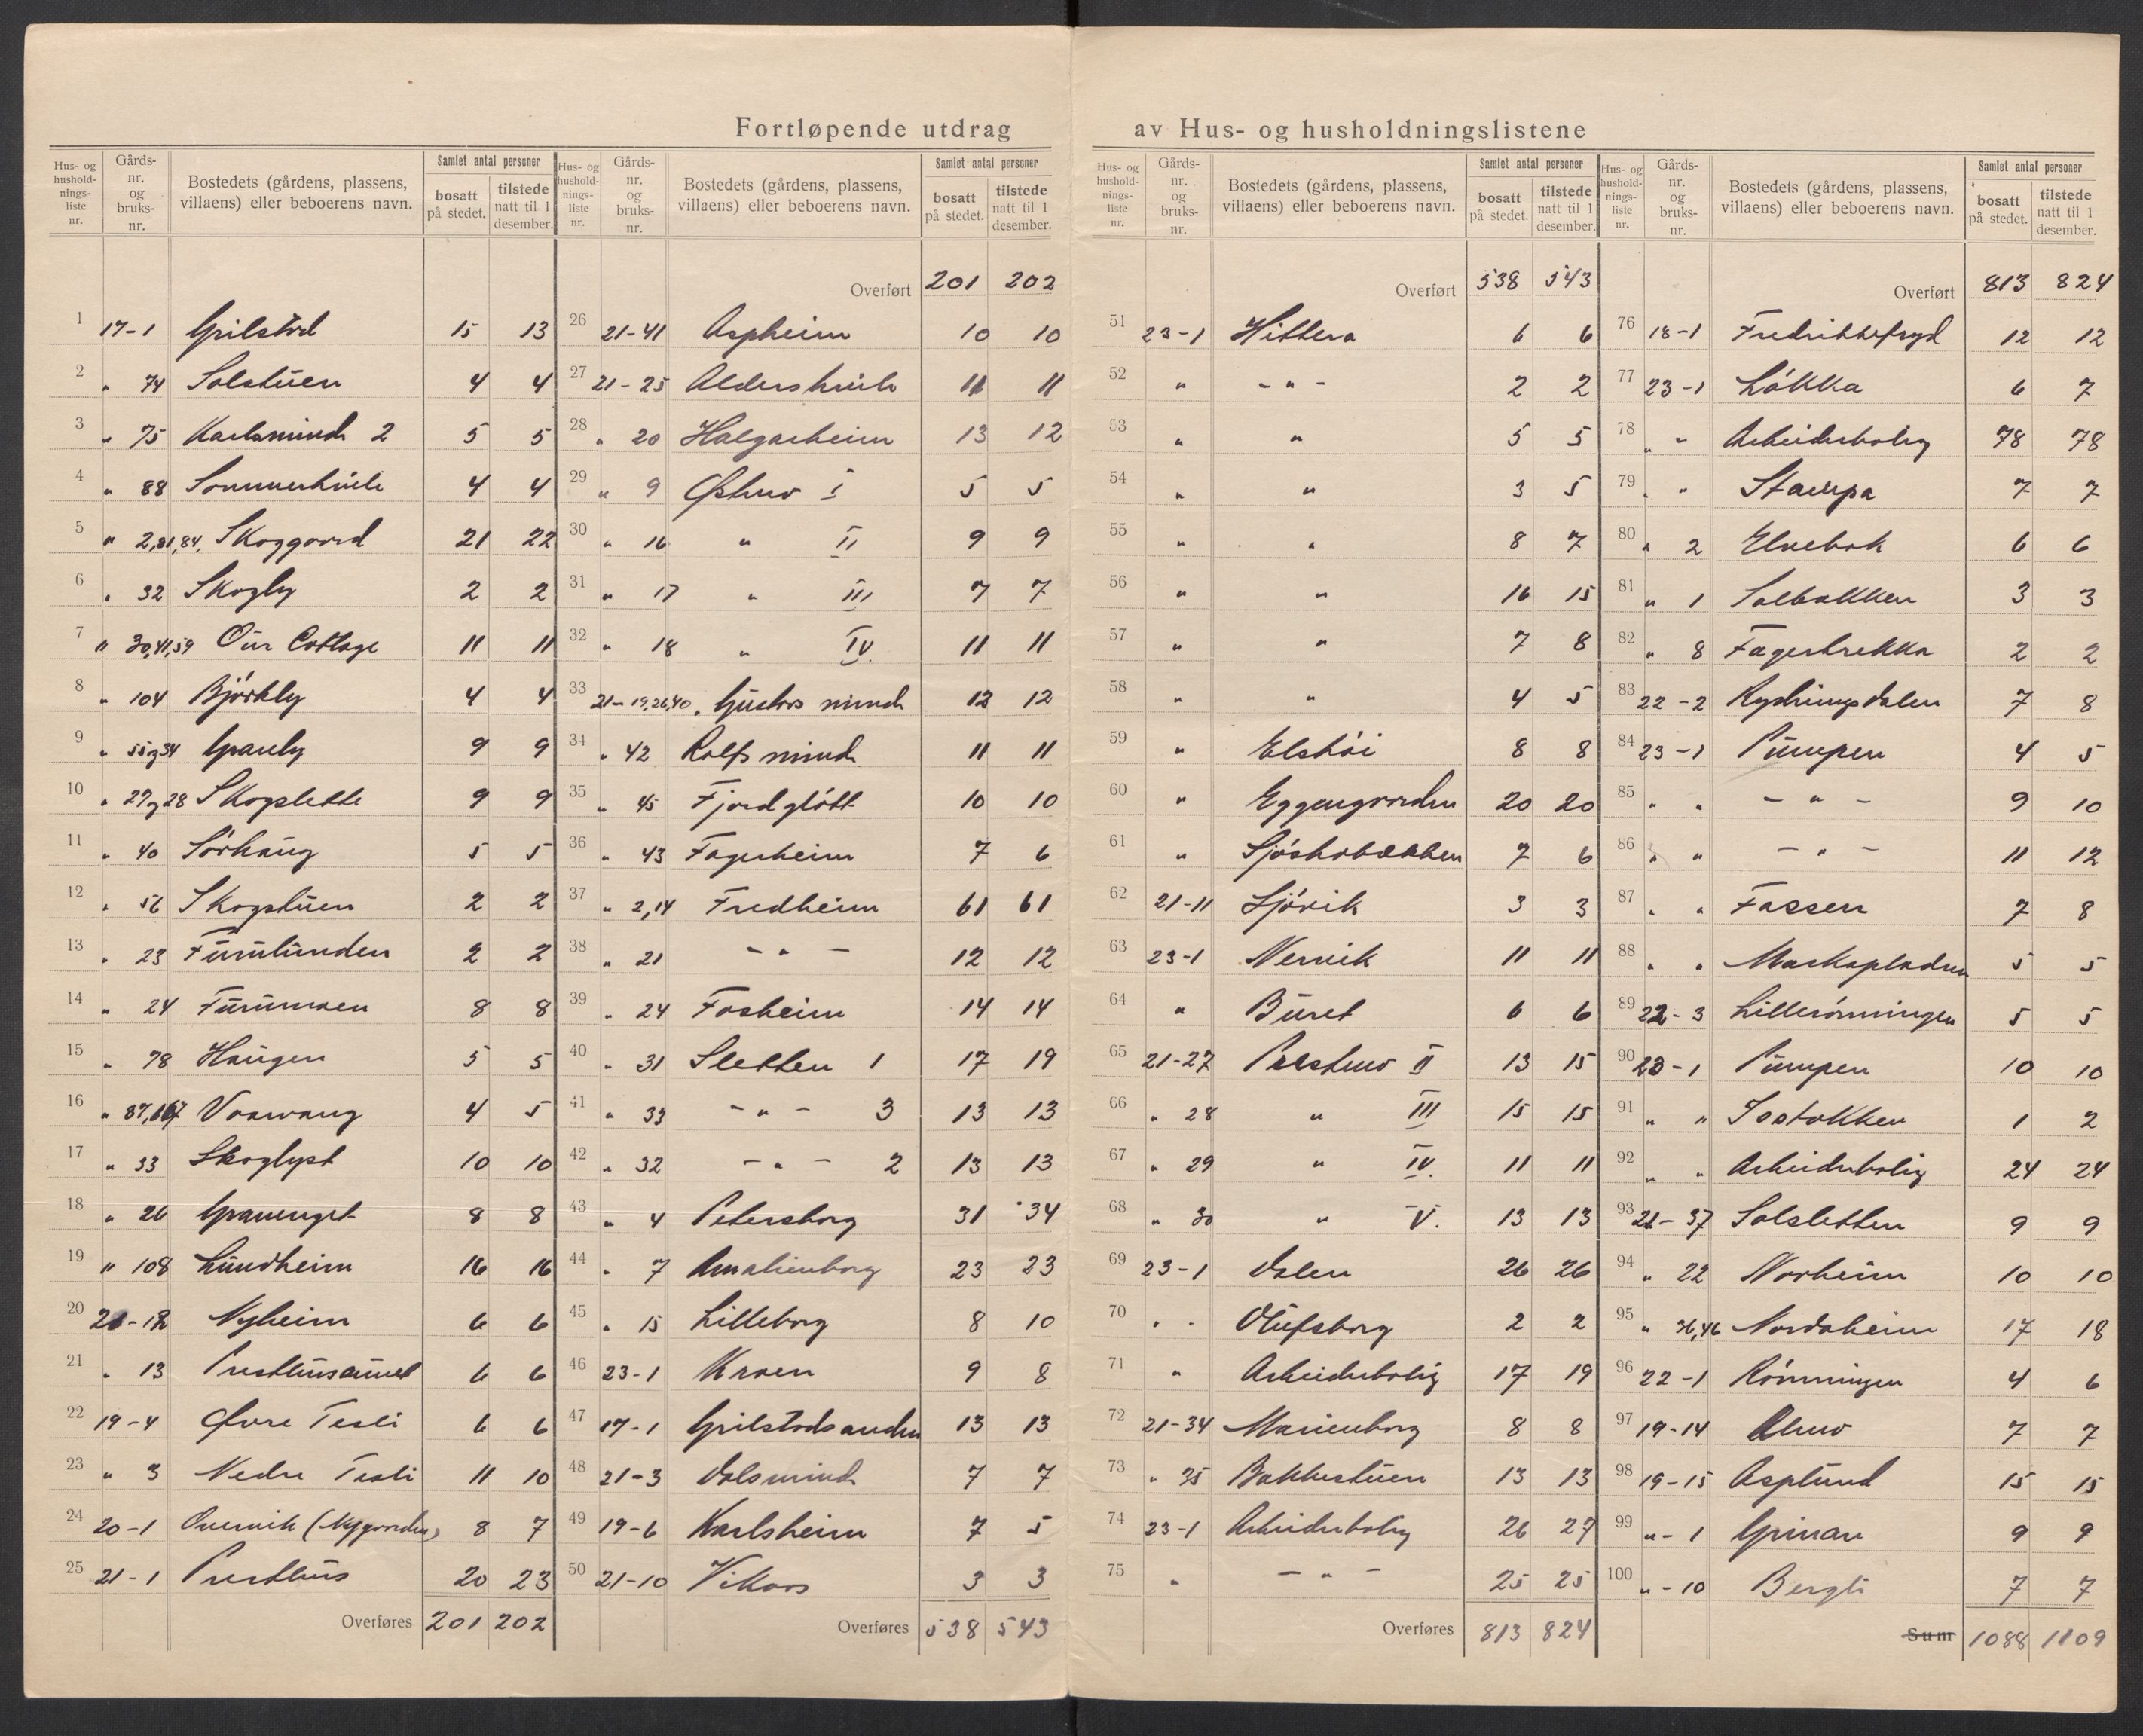 Fortløpende utdrag av Hus- og husholdningslistene
Hus- og husholdnings-liste nr. Gårds-nr. og bruks-nr. Bostedets (gårdens, plassens, villaens) eller beboerens navn. Samlet antal personer bosatt på stedet. tilstede natt til 1 desember.
1 17-1 Grilstad 15 13
2 " 74 Solstuen 4 4
3 " 75 Karlsminde 2 5 5
4 " 88 Sommerhvile 4 4
5 " 2,81,84, Skoggaard 21 22
6 " 32 Skogly 2 2
7 " 30,41,59 Our Cottage 11 11
8 " 104 Björkly 4 4
9 " 55g34 Granly 9 9
10 " 27g28 Skogslette 9 9
11 " 40 Sörhaug 5 5
12 " 56 Skogstuen 2 2
13 " 23 Furulunden 2 2
14 " 24 Furumoen 8 8
15 " 78 Haugen 5 5
16 " 87,167 Vaarvang 4 5
17 " 33 Skoglyst 10 10
18 " 26 Granenget 8 8
19 " 108 Lundheim 16 16
20 21-12 Nyheim 6 6
21 " 13 Presthusaunet 6 6
22 19-4 Øvre Tesli 6 6
23 " 3 Nedre Tesli 11 10
24 20-1 Overvik (Nygaarden) 8 7
25 21-1 Presthus 20 23
Overføres 201 202
Hus- og husholdnings-liste nr. Gårds-nr. og bruks-nr. Bostedets (gårdens, plassens, villaens) eller beboerens navn. Samlet antal personer bosatt på stedet. tilstede natt til 1 desember.
Overført 201 202
26 21-41 Aspheim 10 10
27 21-25 Aldershvile 11 11
28 " 20 Halgarheim 13 12
29 " 9 Østmo I 5 5
30 " 16 " II 9 9
31 " 17 " III 7 7
32 " 18 " IV. 11 11
33 21-19,26,40. Gustavs minde 12 12
34 " 42 Rolfs minde 11 11
35 " 45 Fjordgløtt 10 10
36 " 43 Fagerheim 7 6
37 " 2,14 Fredheim 61 61
38 " 21 - " - 12 12
39 " 24 Fosheim 14 14
40 " 31 Sletten 1 17 19
41 " 33 - " - 3 13 13
42 " 32 - " - 2 13 13
43 " 4 Petersborg 31 34
44 " 7 Amalienborg 23 23
45 " 15 Lilleborg 8 10
46 23-1 Kroen 9 8
47 17-1 Grilstadsanden 13 13
48 21-3 Dalsminde 7 7
49 19-6 Karlsheim 7 5
50 21-10 Vikaas 3 3
Overføres 538 543
Hus- og husholdnings-liste nr. Gårds-nr. og bruks-nr. Bostedets (gårdens, plassens, villaens) eller beboerens navn. Samlet antal personer bosatt på stedet. tilstede natt til 1 desember.
Overført 538 543
51 23-1 Hittera 6 6
52 " - " - 2 2
53 " " 5 5
54 " " 3 5
55 " " 8 7
56 " " 16 15
57 " " 7 8
58 " " 4 5
59 " Elshöi 8 8
60 " Eggengaarden 20 20
61 " Sjöskobakken 7 6
62 21-11 Sjövik 3 3
63 23-1 Nervik 11 11
64 " Buret 6 6
65 21-27 II 13 15
66 " 28 " III 15 15
67 " 29 " IV. 11 11
68 " 30 " V. 13 13
69 23-1 Dalen 26 26
70 " " Olufsborg 2 2
71 " Arbeiderbolig 17 19
72 21-34 Marienborg 8 8
73 " 35 Bakkestuen 13 13
74 23-1 Arbeiderbolig 26 27
75 " - " - 25 25
Overføres 813 824
Hus- og husholdnings-liste nr. Gårds-nr. og bruks-nr. Bostedets (gårdens, plassens, villaens) eller beboerens navn. Samlet antal personer bosatt på stedet. tilstede natt til 1 desember.
Overført 813 824
76 18-1 Fredrikkefryd 12 12
77 23-1 Lökka 6 7
78 " " Arbeiderbolig 78 78
79 " " Stampa 7 7
80 " 2 Elvebak 6 6
81 " 1 Solbakken 3 3
82 " 8 Fagerbrekka 2 2
83 22-2 7 8
84 23-1 Pumpen 4 5
85 " " - " - 9 10
86 " " - " - 11 12
87 " " Fossen 7 8
88 " " Markapladsen 5 5
89 22-3 Lillerönningen 5 5
90 23-1 Pumpen 10 10
91 " " Isstokken 1 2
92 " " Arbeiderbolig 24 24
93 21-37 Solsletten 9 9
94 " 22 Norheim 10 10
95 " 36,46 Nordaheim 17 18
96 22-1 Rönningen 4 6
97 19-14 7 7
98 19-15 Asplund 15 15
99 "-1 Grinan 9 9
100 "-10 Bergli 7 7
Sum 1088 1109